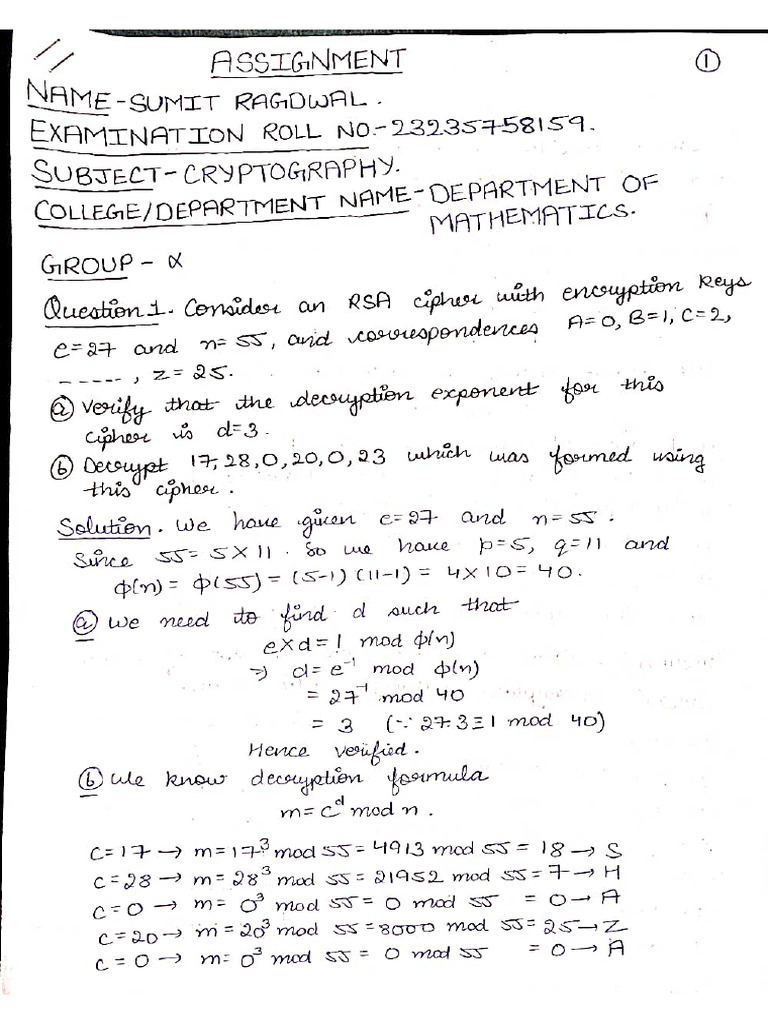 ASSIGNMENT
1
NAME-SUMIT RAGDWAL.
EXAMINATION ROLL NO.-23235758159.
SUBJECT-CRYPTOGRAPHY.
COLLEGE/DEPARTMENT NAME-DEPARTMENT OF
MATHEMATICS.
GROUP - α
Question 1. Consider an RSA cipher with encryption keys
e=27 and n=55, and correspondences A=0, B=1, C=2,
-----, Z=25.
(a) Verify that the decryption exponent for this
cipher is d=3.
(b) Decrypt 17,28,0,20,0,23 which was formed using
this cipher.
Solution. We have given e=27 and n=55.
Since 55=5×11. So we have p=5, q=11 and
ϕ(n)= ϕ(55)=(5-1)(11-1)=4×10=40.
(a) We need to find d such that
e×d=1 mod ϕ(n)
=> d=e⁻¹ mod ϕ(n)
=27⁻¹ mod 40
=3 (∵27·3≡1 mod 40)
Hence verified.
(b) We know decryption formula
m=cᵈ mod n.
C=17→ m=17³ mod 55=4913 mod 55=18→S
C=28→ m=28³ mod 55=21952 mod 55=7→H
C=0→ m=0³ mod 55=0 mod 55 =0→A
C=20→ m=20³ mod 55=8000 mod 55=25→Z
C=0→ m=0³ mod 55=0 mod 55 =0→A